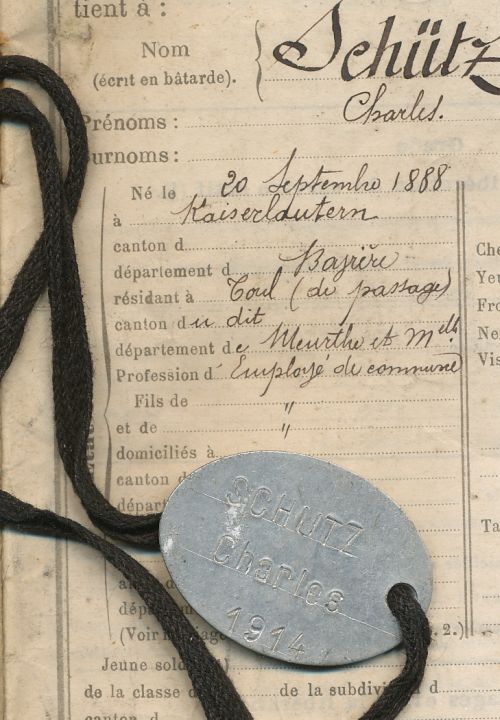 tient à :
Nom Schütz
(écrit en bâtarde).
Prénoms : Charles.
Surnoms :
Né le 20 Septembre 1888
à Kaiserlautern
canton d
département d Bavière
résidant à Toul (de passage)
canton du dit
département de Meurthe et Mlle
Profession d' Employé de commune
Fils de "
et de "
domiciliés à
canton d
départ
SCHUTZ
Charles
1914
(Voir 2.)
Jeune sol
de la classe d de la subdivi d
canton d
État
Che
Yeu
Fro
Nez
Vis
Ta